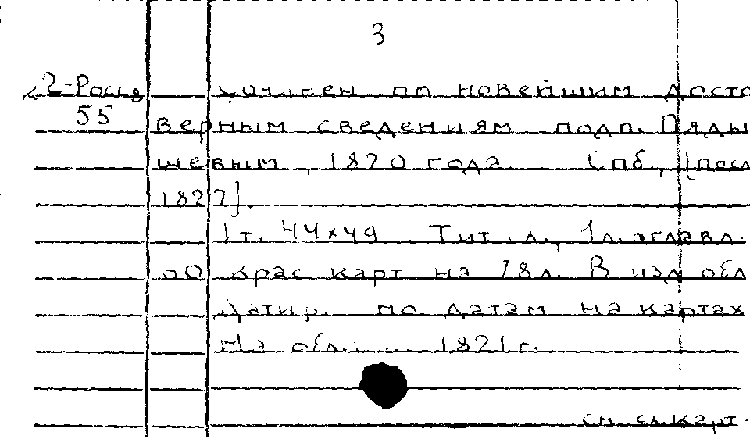 3
2-Росс сочинен по новейшим досто
55 верным сведениям подп. Пяды
шевым 1820 года. Спб, [посл
1827].
1 т. 44х49 Тит. л., 1 л. оглавл.
60 крас карт на 78л. В изд обл
Датир. по датам на картах
На обл. ... 1821 г.
см. сл. карт